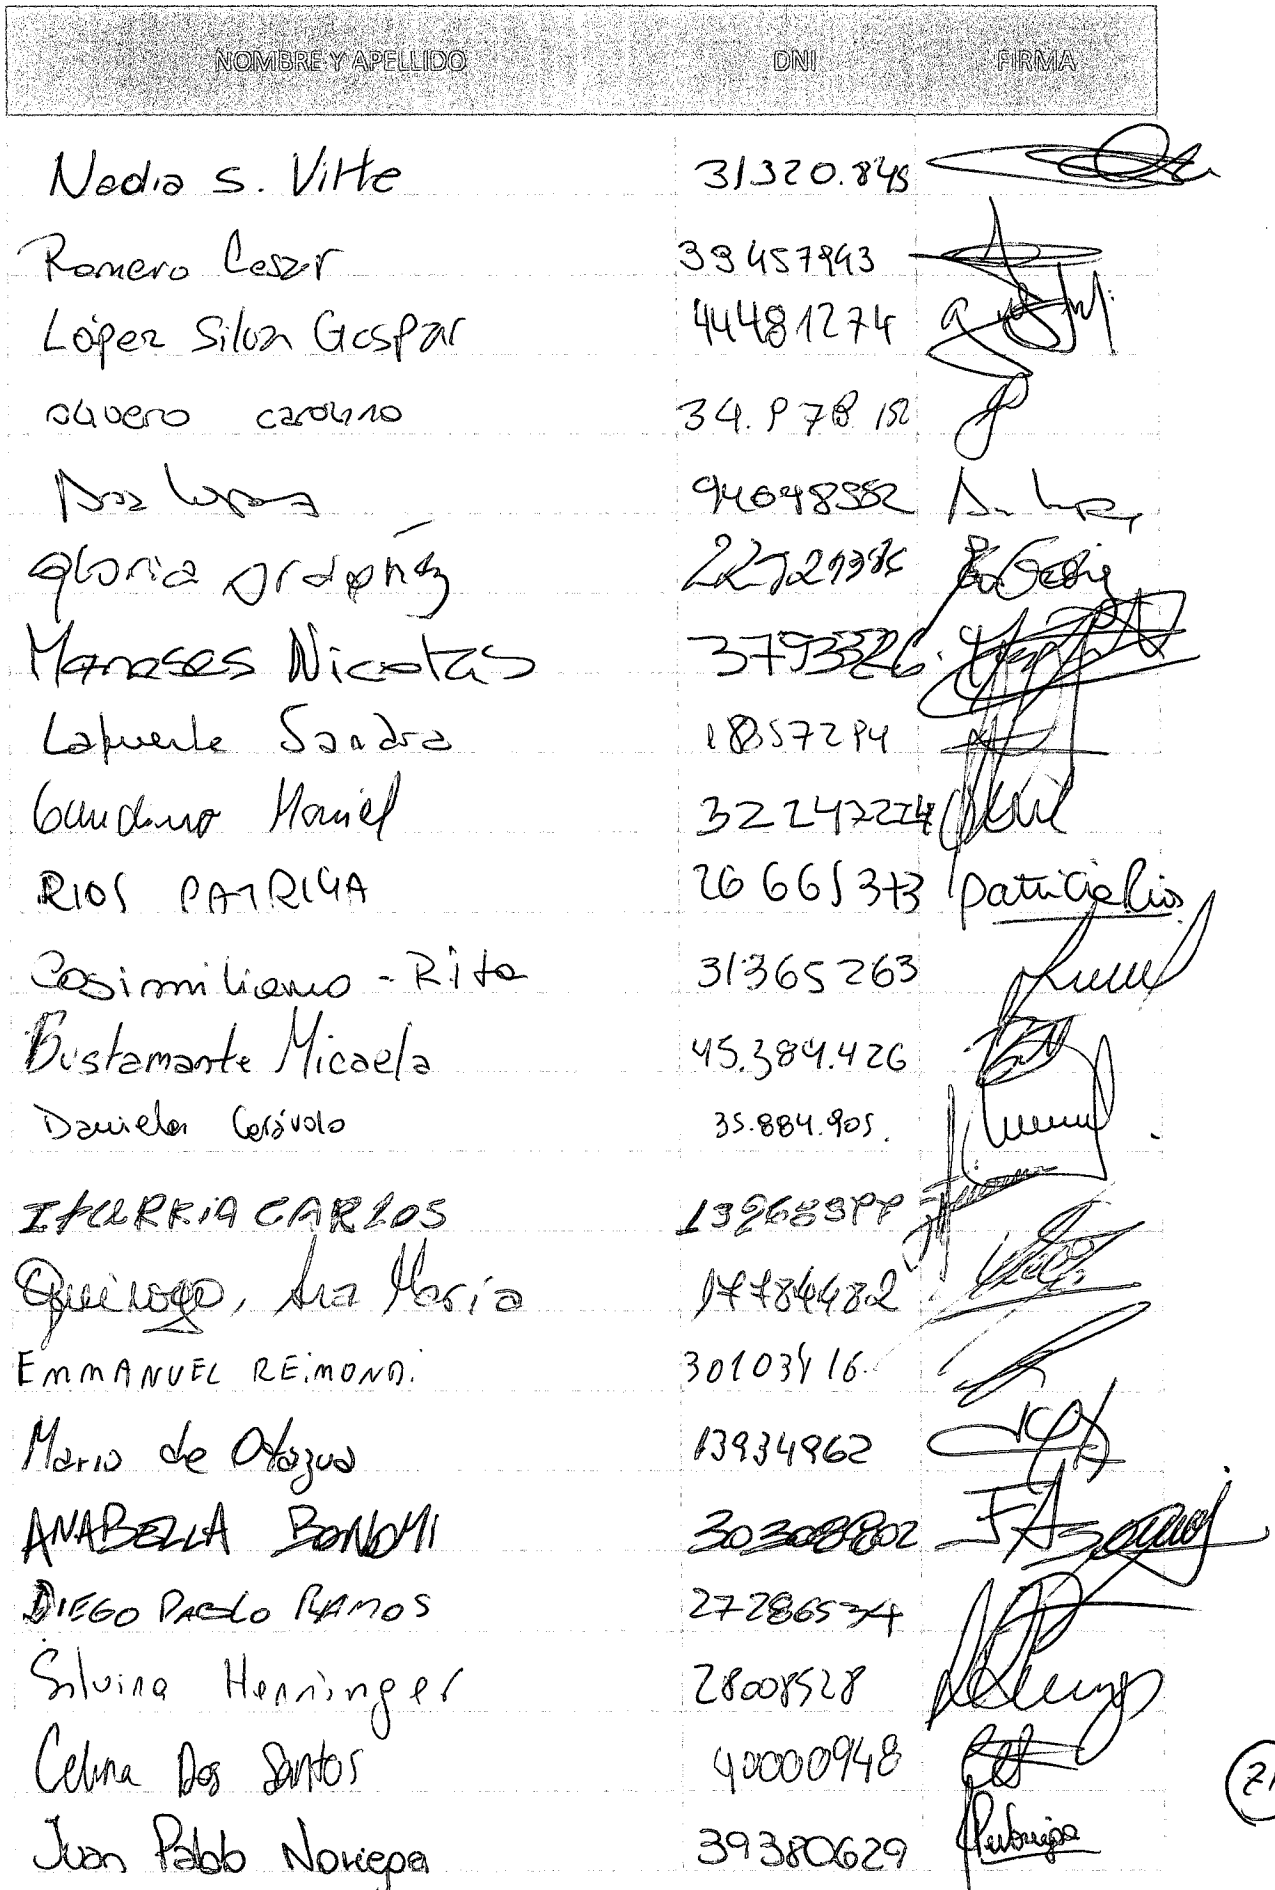 NOMBRE Y APELLIDO DNI FIRMA
Nadia S. Vitte 31320.845
Romero Cesar 39457943
López Silva Gaspar 44481274
Olivero Carolina 34.978.152
Ana Lopez 94648552
Gloria Ordoñez
Meneses Nicolas 3793326.
Lafuente Sandra 18357294
Manuel 32247224
RIOS PATRICIA 26665373 Patricia Rios
Cosimiliano - Rita 31365263
Bustamante Micaela 45.384.426
Daniela Cerávolo 35.884.905.
ITURRIA CARLOS
Quiroga, Ana María 17784482
EMMANUEL REIMONDI. 30103416.
Mario de Otazua 13934962
ANABELLA BONOMI 30308802
DIEGO PABLO RAMOS 27286534
Silvina Henninger 28008528
Celina Dos Santos 40000948
Juan Pablo Noriega 39380629